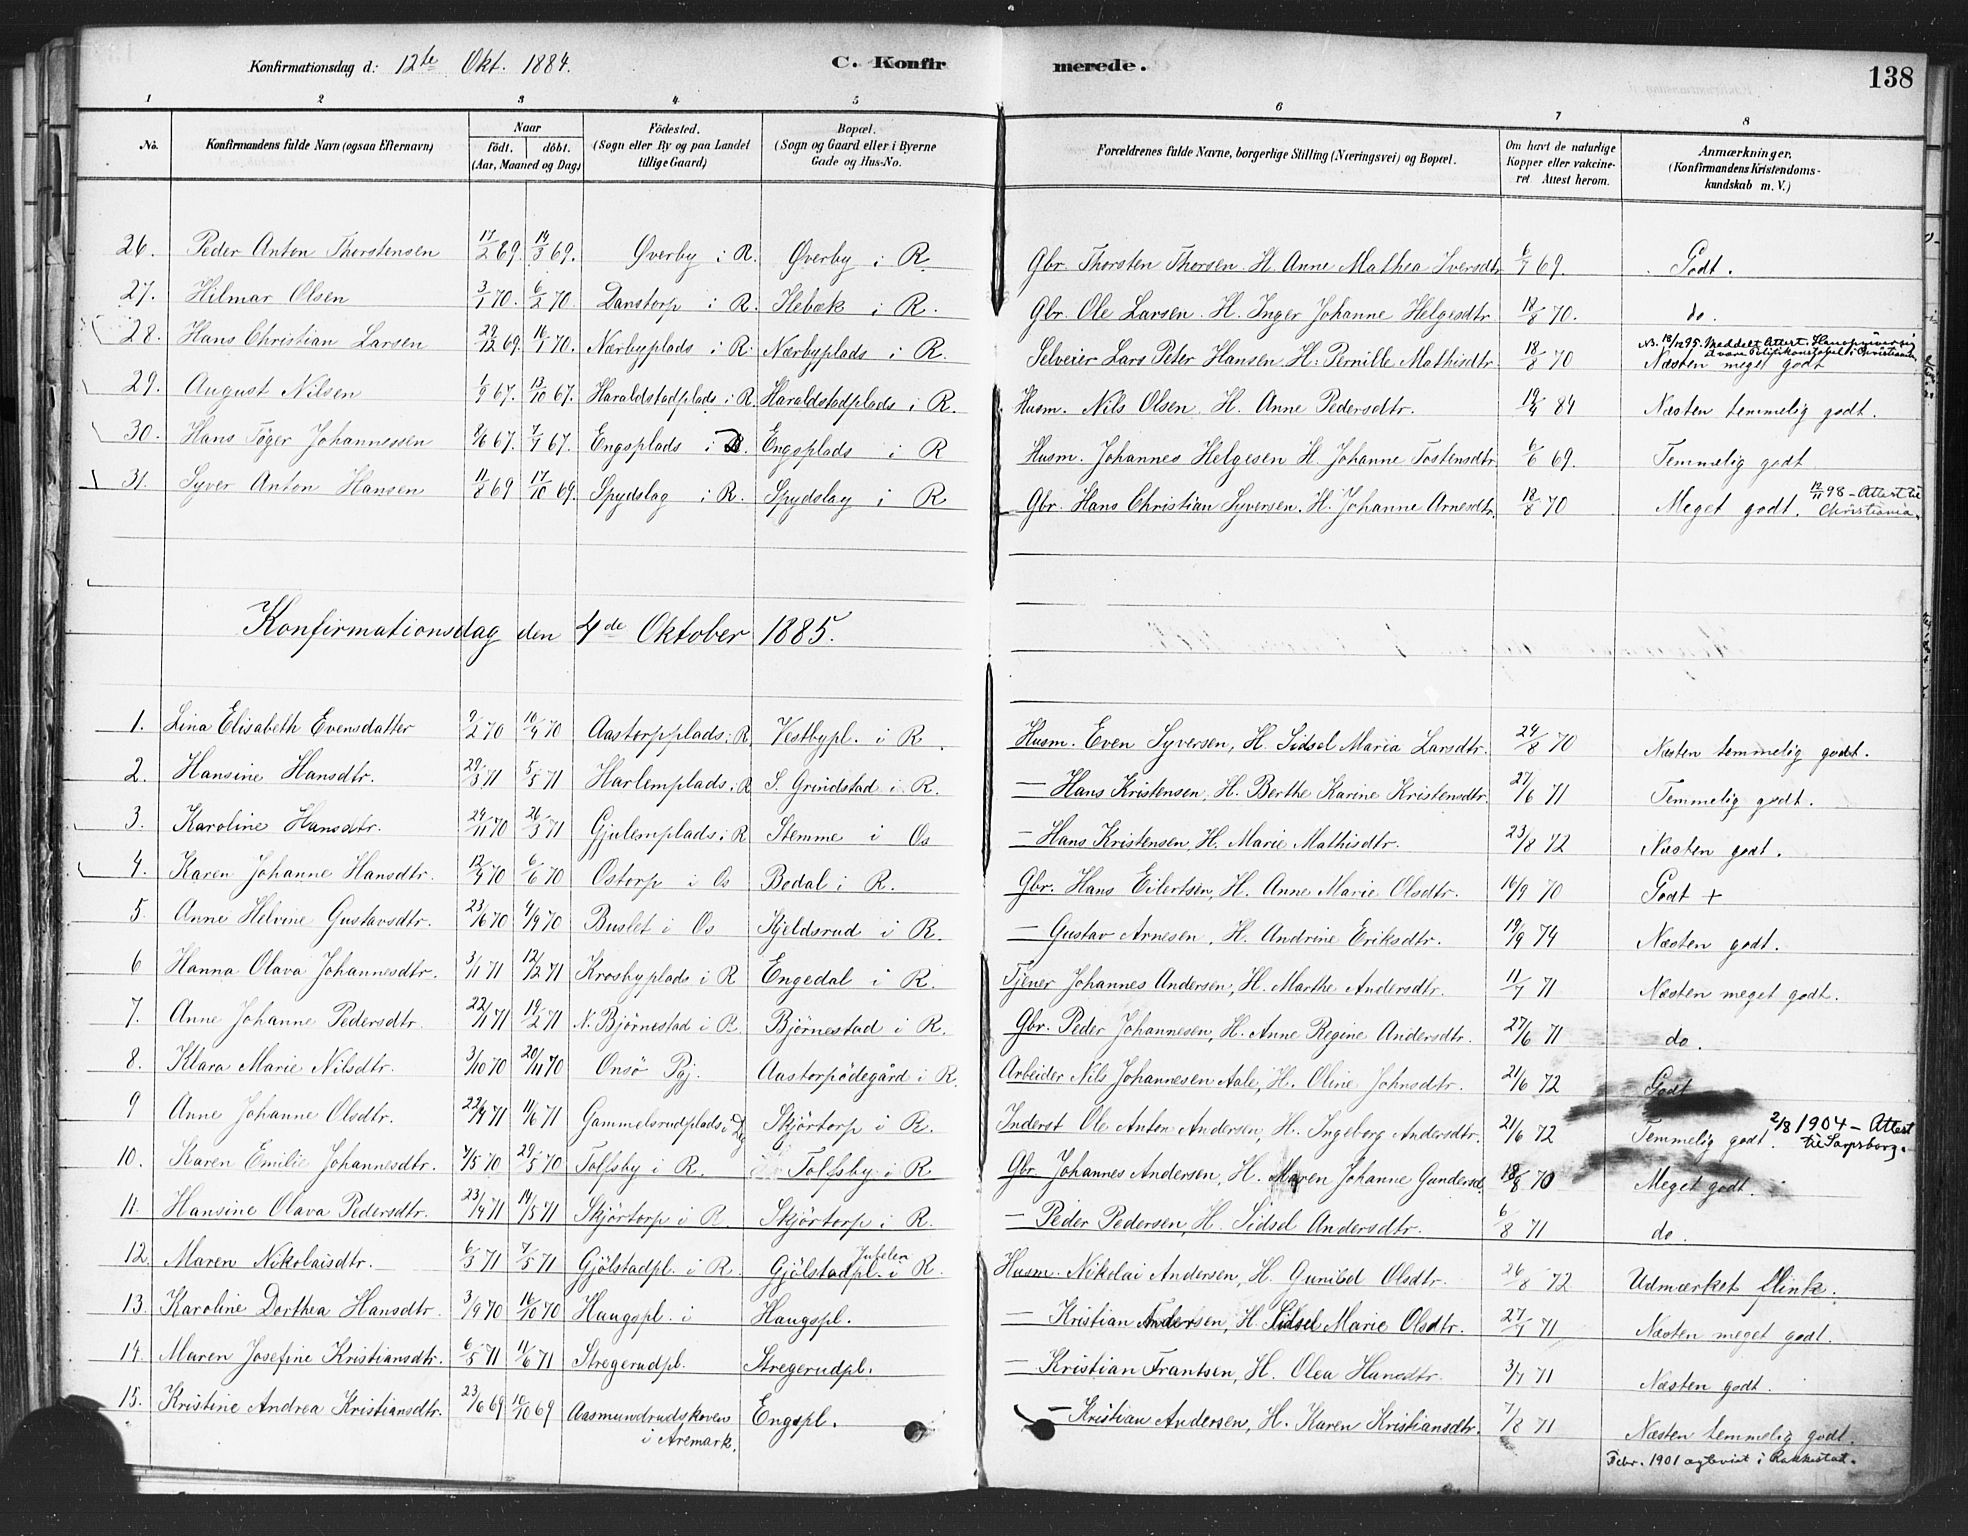 Konfirmationsdag d: 12te Okt. 1884. C. Konfirmerede. 138
1 2 3 4 5 6 7 8
No. Konfirmandens fulde Navn (ogsaa Efternavn) Naar født. døbt. (Aar, Maaned og Dag) Födested. (Sogn eller By og paa Landet tillige Gaard) Bopæl. (Sogn og Gaard eller i Byerne Gade og Hus-No. Forældrenes fulde Navne, borgerlige Stilling (Næringsvei) og Bopæl. Om havt de naturlige Kopper eller vakcineret Attest herom. Anmærkninger. (Konfirmandens Kristendomskundskab m. V.)
26. Peder Anton Thorstensen 17/2 69. 14/3 69. Øverby i R. Øverby i R. Gbr. Thorsten Thorsen. H. Anne Mathea Iversdtr. 6/7 69. Godt.
27. Hilmar Olsen 3/1 70. 6/2 70. Danstorp i R. Hebæk i R. Gbr. Ole Larsen. H. Inger Johanne Helgesdtr. 18/8 70. do.
28. Hans Christian Larsen 29/12 69. 16/1 70. Nærbyplads i R. Nærbyplads i R. Selveier Lars Peter Hansen. H. Pernille Mathisdtr. 18/8 70 Næsten meget godt
29. August Nilsen 1/9 67. 13/10 67. Haraldstadplads i R. Haraldstadplads i R. Husm. Nils Olsen. H. Anne Pedersdtr. 19/4 84 Næsten temmelig godt.
30. Hans Tøger Johannessen 2/6 67. 7/7 67. Engsplads i R. Engsplads i R Husm. Johannes Helgesen H. Johanne Tostensdtr. 6/6 69. Temmelig godt
31. Syver Anton Hansen 11/8 69 17/10 69. Spydslag i R. Spydslag i R Gbr. Hans Christian Syversen. H. Johanne Arnesdtr. 18/8 70 Meget godt. 12/11 98 – Attest til Christiania.
Konfirmationsdag den 4de Oktober 1885.
1. Lina Elisabeth Evensdatter 9/2 70 10/4 70 Aastorpplads i R Vestbypl. i R. Husm. Even Syversen, H. Sidsel Maria Larsdtr. 24/8 70 Næsten temmelig godt.
2. Hansine Hansdtr. 29/3 71 5/5 71 Harlemplads i R S. Grindstad i R. — Hans Kristensen, H. Berthe Karine Kristensdtr. 27/6 71 Temmelig godt.
3. Karoline Hansdtr. 24/11 70 26/3 71 Gjulemplads i R Stemme i Os — Hans Kristensen, H. Marie Mathisdtr. 23/8 72 Næsten godt.
4. Karen Johanne Hansdtr. 12/4 70 6/6 70 Ostorp i Os Bodal i R. Gbr. Hans Eilertsen, H. Anne Marie Olsdtr. 16/9 70 Godt +
5. Anne Helvine Gustavsdtr. 23/6 70 4/9 70 Buslet i Os Kjeldsrud i R. — Gustav Arnesen, H. Andrine Eriksdtr. 19/9 74 Næsten godt.
6 Hanna Olava Johannesdtr. 3/1 71 12/2 71 Krosbyplads i R Engedal i R. Tjener Johannes Andersen, H. Marthe Andersdtr. 11/7 71 Næsten meget godt.
7. Anne Johanne Pedersdtr. 22/1 71 19/2 71 N. Bjørnestad i R. Bjørnestad i R. Gbr. Peder Johannesen, H. Anne Regine Andersdtr. 27/6 71 do.
8. Klara Marie Nilsdtr. 3/10 70 20/11 70 Onsö Pgj. Aastorpödegård i R. Arbeider Nils Johannesen Aale, H. Oline Johnsdtr. 21/6 72 Godt
9 Anne Johanne Olsdtr. 22/4 71 11/6 71 Gammelsrudplads i Dg Skjörtorp i R. Inderst Ole Anton Andersen, H. Ingeborg Andersdtr. 21/6 72 Temmelig godt. 2/8 1904 – Attest til Sarpsborg.
10. Karen Emilie Johannesdtr. 7/5 70 29/5 70 Tolfsby i R. Tolfsby i R Gbr. Johannes Andersen, H. Maren Johanne Gundersd. 18/8 70 Meget godt.
11. Hansine Olava Pedersdtr. 23/4 71 14/5 71 Skjörtorp i R. Skjörtorp i R. — Peder Pedersen, H. Sidsel Andersdtr. 6/8 71 do.
12. Maren Nikolaisdtr. 6/3 71 7/5 71 Gjölstadpl. i R. Gjölstadpl. i R. Husm. Nikolai Andersen, H. Gunild Olsdtr. 26/8 72 Udmærket flink.
13. Karoline Dorthea Hansdtr. 3/9 70 16/10 70 Haugspl. i Haugspl. — Kristian Andersen, H. Sidsel Marie Olsdtr. 27/7 71 Næsten meget godt.
14. Maren Josefine Kristiansdtr. 6/5 71 11/6 71 Stregerudpl. Stregerudpl. — Kristian Frantsen, H. Olea Hansdtr. 3/7 71 Næsten godt.
15. Kristine Andrea Kristiansdtr. 23/6 69 10/10 69 Aasmundrudskoven i Aremark. Engspl. — Kristian Andersen, H. Karen Kristiansdtr. 7/8 71 Næsten temmelig godt.
Febr. 1901 ægteviet i Rakkestad.